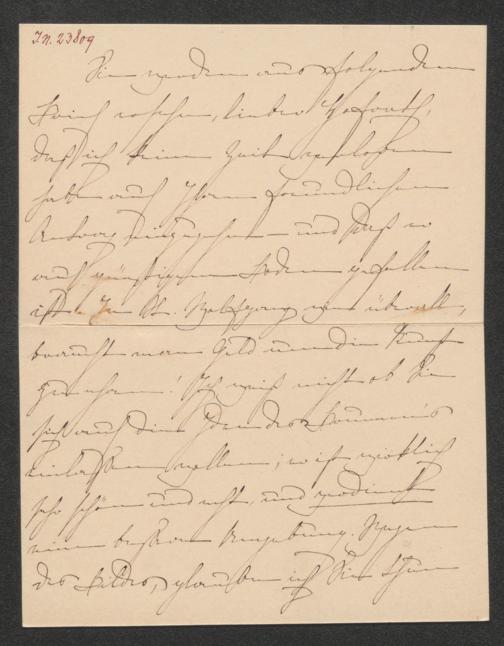 In. 23809
Sie werden aus folgendem
Brief ersehen, lieber Hofrath,
daß ich keine Zeit verloren
habe auf Ihren freundlichen
Antrag einzugehen – und daß er
auf günstigen Boden gefallen
ist. In St. Wolfgang wie überall,
braucht man Geld um die Kunst
zu
! Ich weiß nicht ob Sie
sich auf die Idee des
einlassen wollen; er ist wirklich
sehr schön und echt, und verdient
eine bessere Umgebung. Wegen
des Bildes, glaube ich Sie